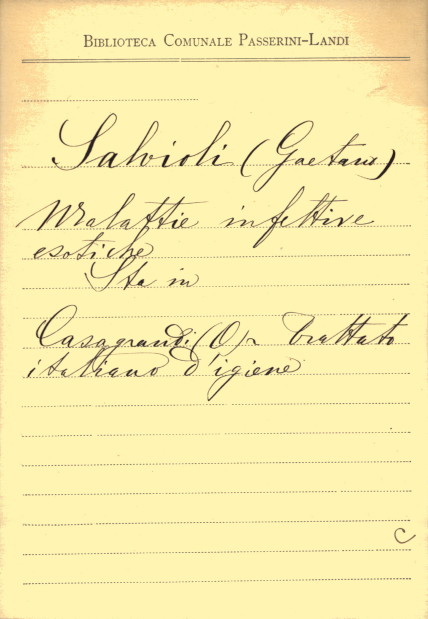 BIBLIOTECA COMUNALE PASSERINI-LANDI
Salvioli (Gaetano)
Malattie infettive
esotiche
Sta in
Casagrandi (O) - Trattato
italiano d'igiene
C